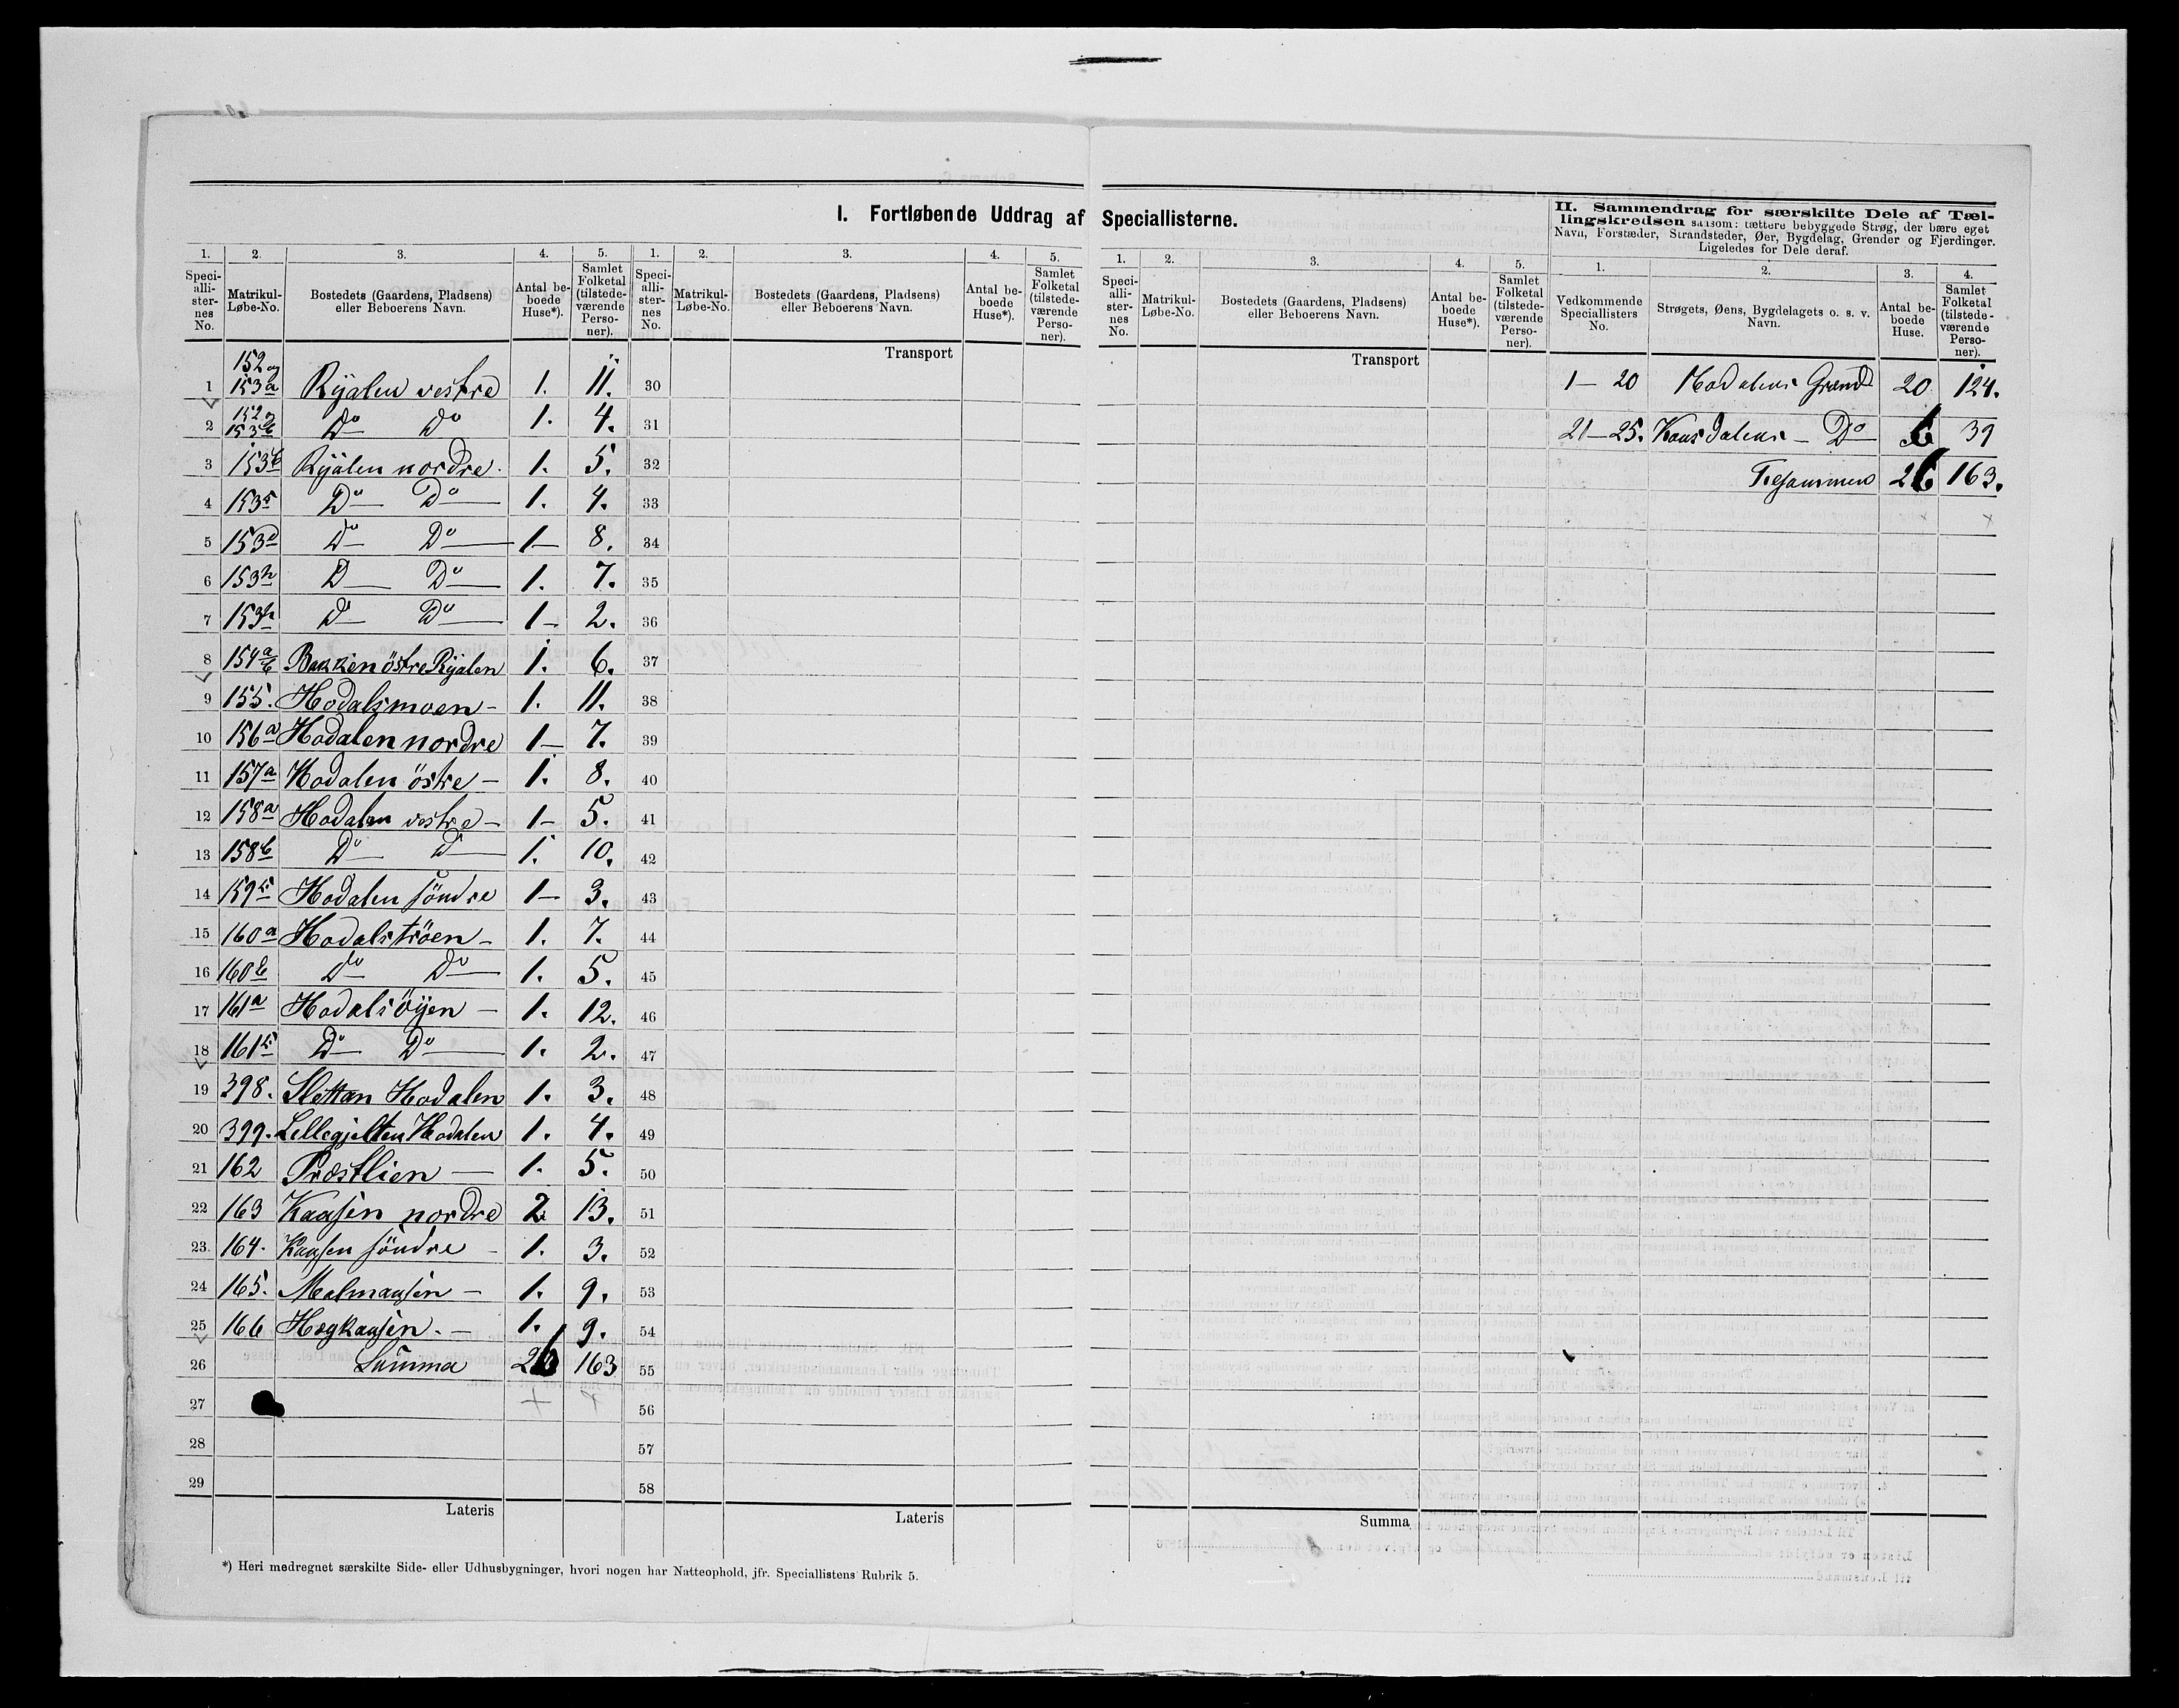 I. Fortløbende Uddrag af Speciallisterne.
II. Sammendrag for særskilte Dele af Tæl-
lingskredsen saasom: tættere bebyggede Strøg, der bære eget
Navn, Forstæder, Strandsteder, Øer, Bygdelag, Grender og Fjerdinger.
Ligeledes for Dele deraf.
1. 2. 3. 4. 5. 1. 2. 3. 4. 5. 1. 2. 3. 4. 5. 1. 2. 3. 4.
Speci-alli-ster-nes No. Matrikul-Løbe-No. Bostedets (Gaardens, Pladsens) eller Beboerens Navn. Antal be-boede Huse*). Samlet Folketal (tilstede-værende Perso-ner).
Speci-alli-ster-nes No. Matrikul-Løbe-No. Bostedets (Gaardens, Pladsens) eller Beboerens Navn. Antal be-boede Huse*). Samlet Folketal (tilstede-værende Perso-ner).
Speci-alli-ster-nes No. Matrikul-Løbe-No. Bostedets (Gaardens, Pladsens) eller Beboerens Navn. Antal be-boede Huse*). Samlet Folketal (tilstede-værende Perso-ner).
Vedkommende Speciallisters No. Strøgets, Øens, Bygdelagets o. s. v. Navn. Antal be-boede Huse. Samlet Folketal (tilstede-værende Perso-ner).
Transport Transport
1 152 og 153a Ryalen vestre 1. 11. 30
2 152 og 153b Do Do 1. 4. 31
3 153b Ryalen nordre. 1. 5. 32
4 153c Do Do 1. 4. 33
5 153d Do Do 1 8. 34
6 Do Do 1. 7. 35
7 Do Do 1 2. 36
8 154a/b Bakken östre Ryalen 1. 6. 37
9 155. Hodalsmoen 1. 11. 38
10 156a Hodalen nordre 1 7. 39
11 157a Hodalen östre 1. 8. 40
12 158a Hodalen vestre 1 5. 41
13 158b Do Do 1. 10. 42
14 159c Hodalen söndre 1 3. 43
15 160a Hodalströen 1. 7. 44
16 160b Do Do 1. 5. 45
17 161a Hodalsöyen 1. 12. 46
18 161c Do Do 1. 2. 47
19 398. Slettan Hodalen 1. 3. 48
20 399. Lellegjelten Hodalen 1. 4. 49
21 162 Præstlien 1. 5. 50
22 163 Kausen nordre 2 13. 51
23. 164. Kausen söndre 1. 3. 52
24 165. Malmausen 1. 9. 53
25 166 Hegkausen. 1. 9. 54
26 Summa 26 163 55
27 56
28 57
29 58
Lateris Lateris Summa
1-20 Hodalens Grend 20 124.
21-25. Kausdalens Do 6 39
Tilsammen 26 163.
*) Heri medregnet særskilte Side- eller Udhusbygninger, hvori nogen har Natteophold, jfr. Speciallistens Rubrik 5.